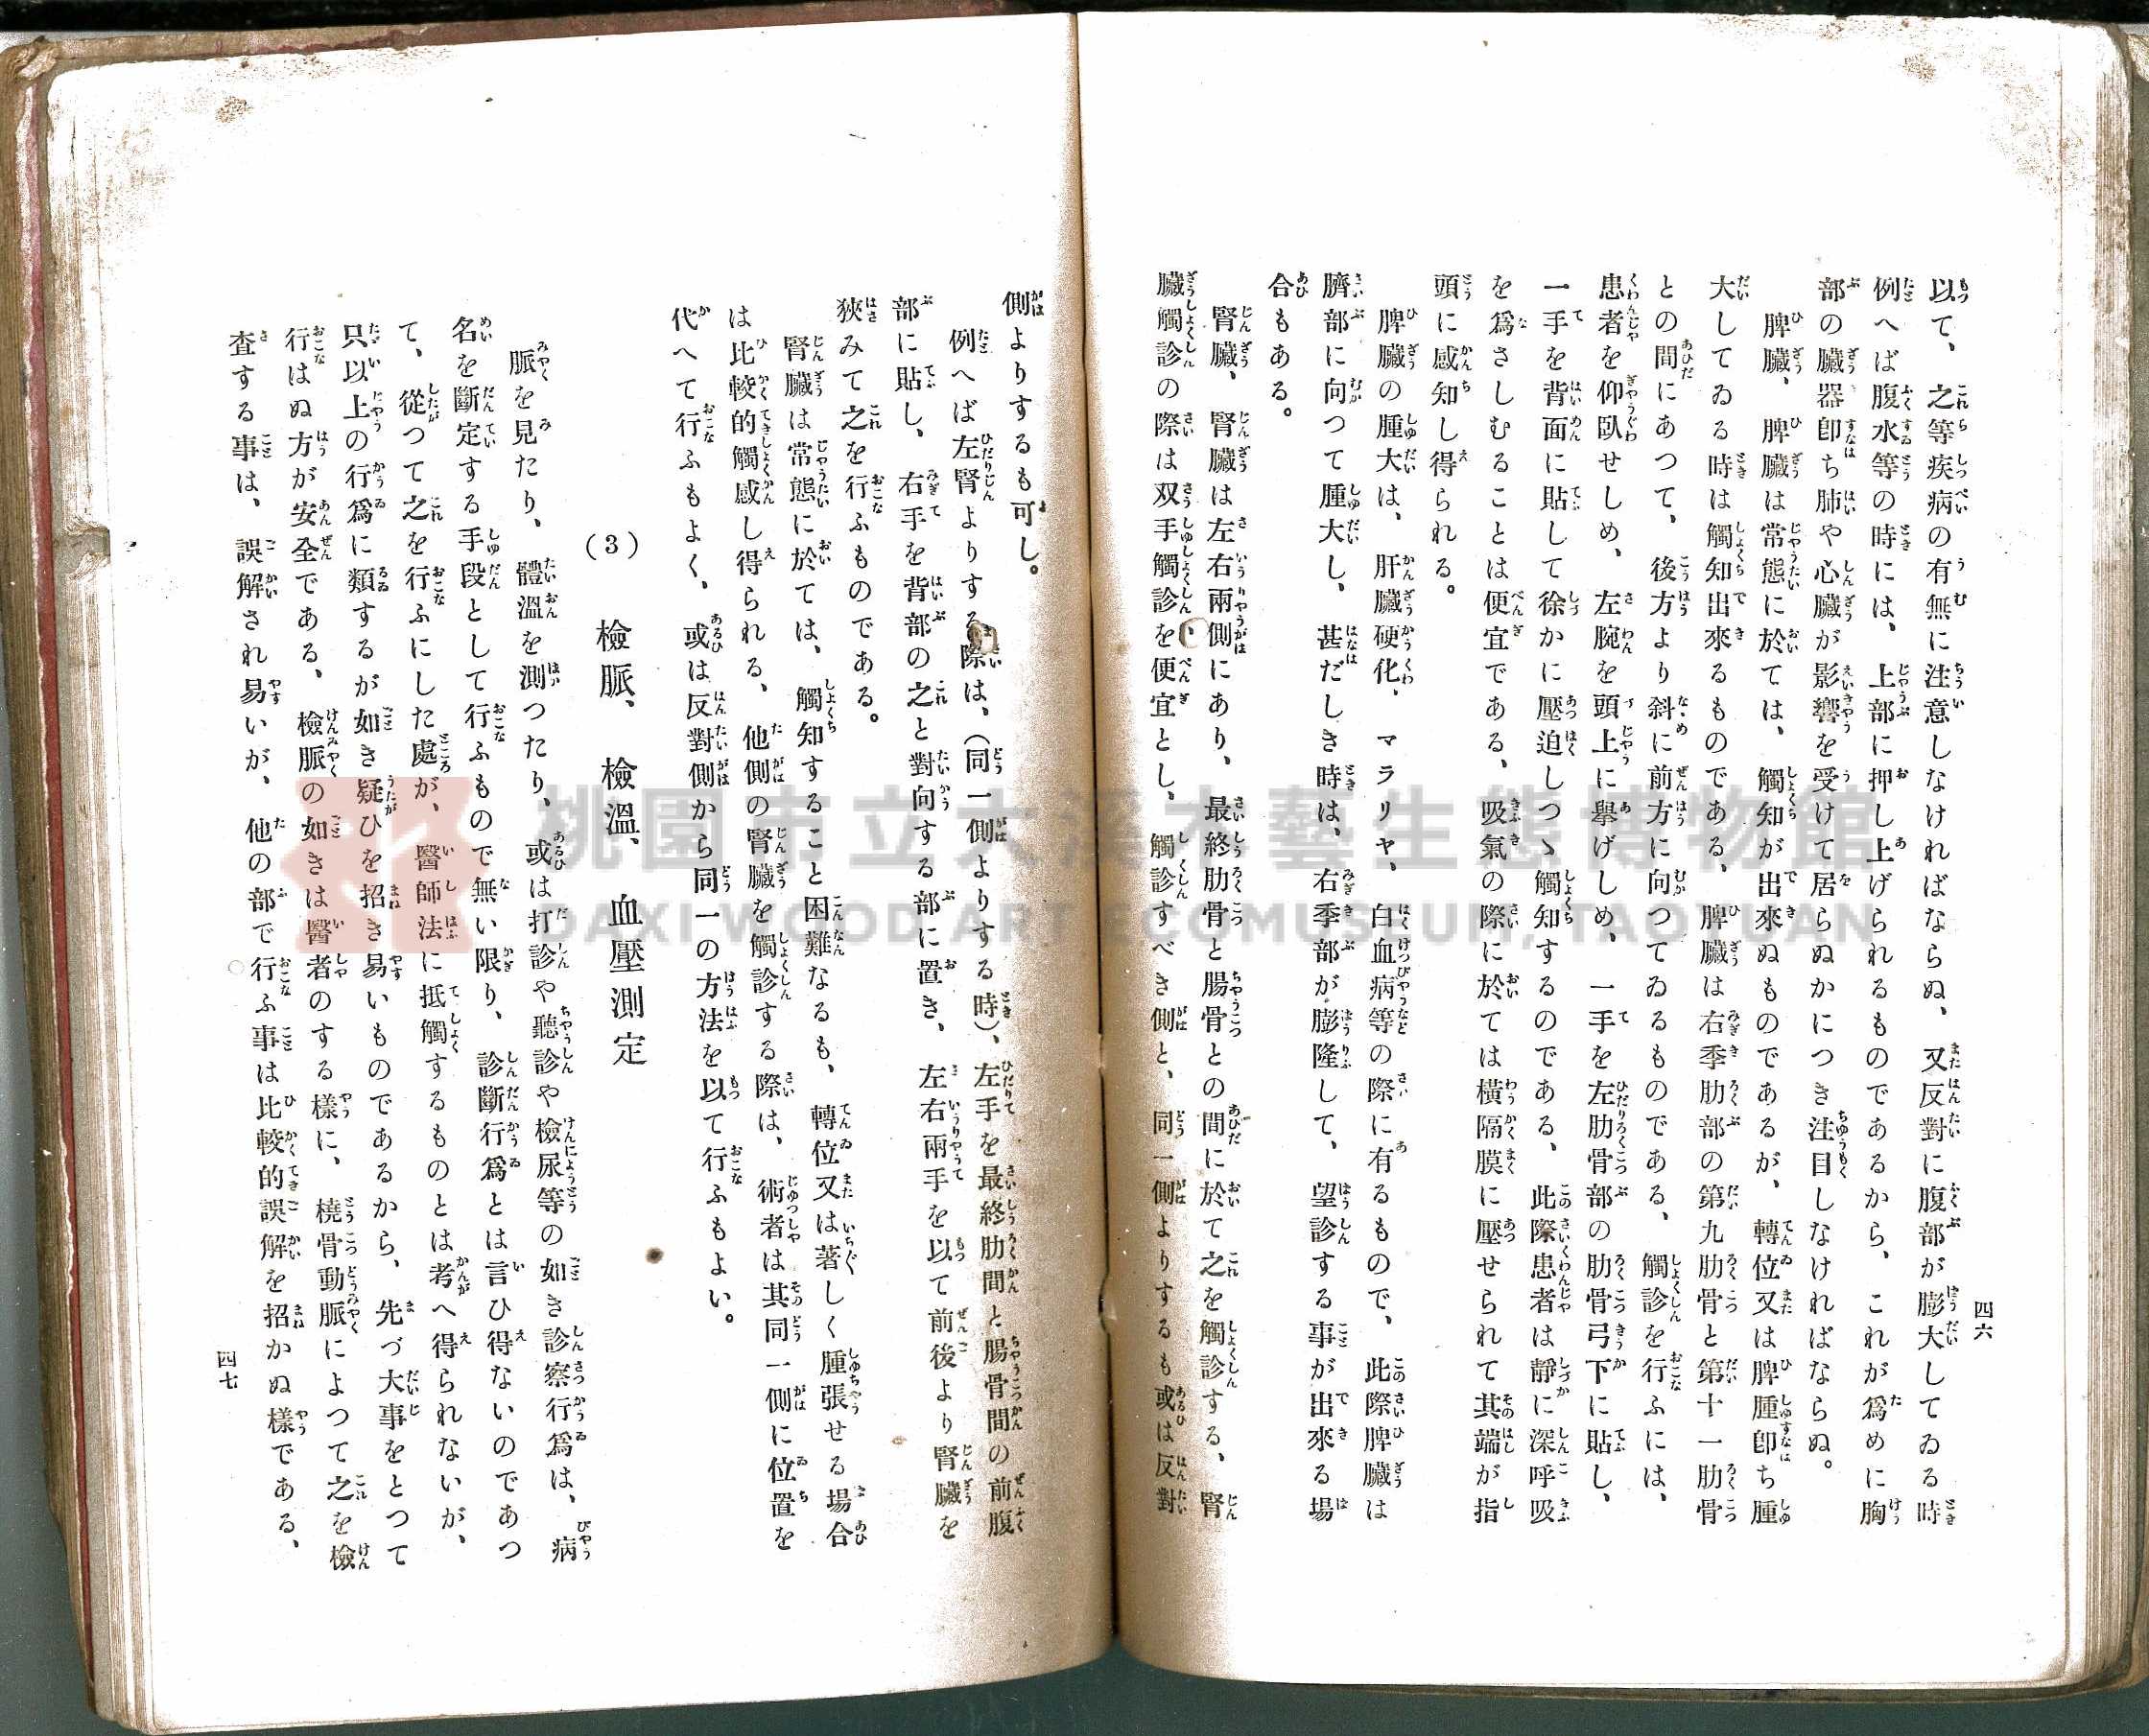 四六
以て、之等疾病の有無に注意しなければならぬ、又反對に腹部が膨大してゐる時
例へば腹水等の時には、上部に押し上げられるものであるから、これが爲めに胸
部の臟器卽ち肺や心臟が影響を受けて居らぬかにつき注目しなければならぬ。
脾臟、脾臟は常態に於ては、觸知が出來ぬものであるが、轉位又は脾腫卽ち腫
大してゐる時は觸知出來るものである、脾臟は右季肋部の第九肋骨と第十一肋骨
との間にあつて、後方より斜に前方に向つてゐるものである、觸診を行ふには、
患者を仰臥せしめ、左腕を頭上に擧げしめ、一手を左肋骨部の肋骨弓下に貼し、
一手を背面に貼して徐かに壓迫しつゝ觸知するのである、此際患者は靜に深呼吸
を爲さしむることは便宜である、吸氣の際に於ては橫隔膜に壓せられて其端が指
頭に感知し得られる。
脾臟の腫大は、肝臟硬化、マラリヤ、白血病等の際に有るもので、此際脾臟は
臍部に向つて腫大し、甚だしき時は、右季部が膨隆して、望診する事が出來る場
合もある。
腎臟、腎臟は左右兩側にあり、最終肋骨と腸骨との間に於て之を觸診する、腎
臟觸診の際は双手觸診を便宜とし、觸診すべき側と、同一側よりするも或は反對
側よりするも可し。
例へば左腎よりする際は、(同一側よりする時)、左手を最終肋間と腸骨間の前腹
部に貼し、右手を背部の之と對向する部に置き、左右兩手を以て前後より腎臟を
狹みて之を行ふものである。
腎臟は常態に於ては、觸知すること困難なるも、轉位又は著しく腫張せる場合
は比較的觸感し得られる、他側の腎臟を觸診する際は、術者は其同一側に位置を
代へて行ふもよく、或は反對側から同一の方法を以て行ふもよい。
(3) 檢脈、檢溫、血壓測定
脈を見たり、體溫を測つたり、或は打診や聽診や檢尿等の如き診察行爲は、病
名を斷定する手段として行ふもので無い限り、診斷行爲とは言ひ得ないのであつ
て、從つて之を行ふにした處が、醫師法に抵觸するものとは考へ得られないが、
只以上の行爲に類するが如き疑ひを招き易いものであるから、先づ大事をとつて
行はぬ方が安全である、檢脈の如きは醫者のする樣に、橈骨動脈によつて之を檢
査する事は、誤解され易いが、他の部で行ふ事は比較的誤解を招かぬ樣である、
四七
桃園市立大溪木藝生態博物館
DAXI WOOD ART ECOMUSEUM, TAOYUAN